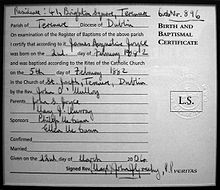 Residence: 41 Brighton Square, Terenure
Parish of Terenure Diocese of Dublin
On examination of the Register of Baptisms of the above parish
I certify that according to it James Augustine Joyce
was born on the 2nd day of February 1882
and was baptised according to the Rites of the Catholic Church
on the 5th day of February 1882
in the Church of St. Joseph, Terenure, Dublin
by the Rev. John O' Mulloy
Parents John S. Joyce
Mary J. Murray
Sponsors Philip McCann
Ellen McCann
Confirmed
Married
Given on the day of March
Signed Rev. P.P.
No. 896
BIRTH AND
BAPTISMAL
CERTIFICATE
L.S.
VERITAS